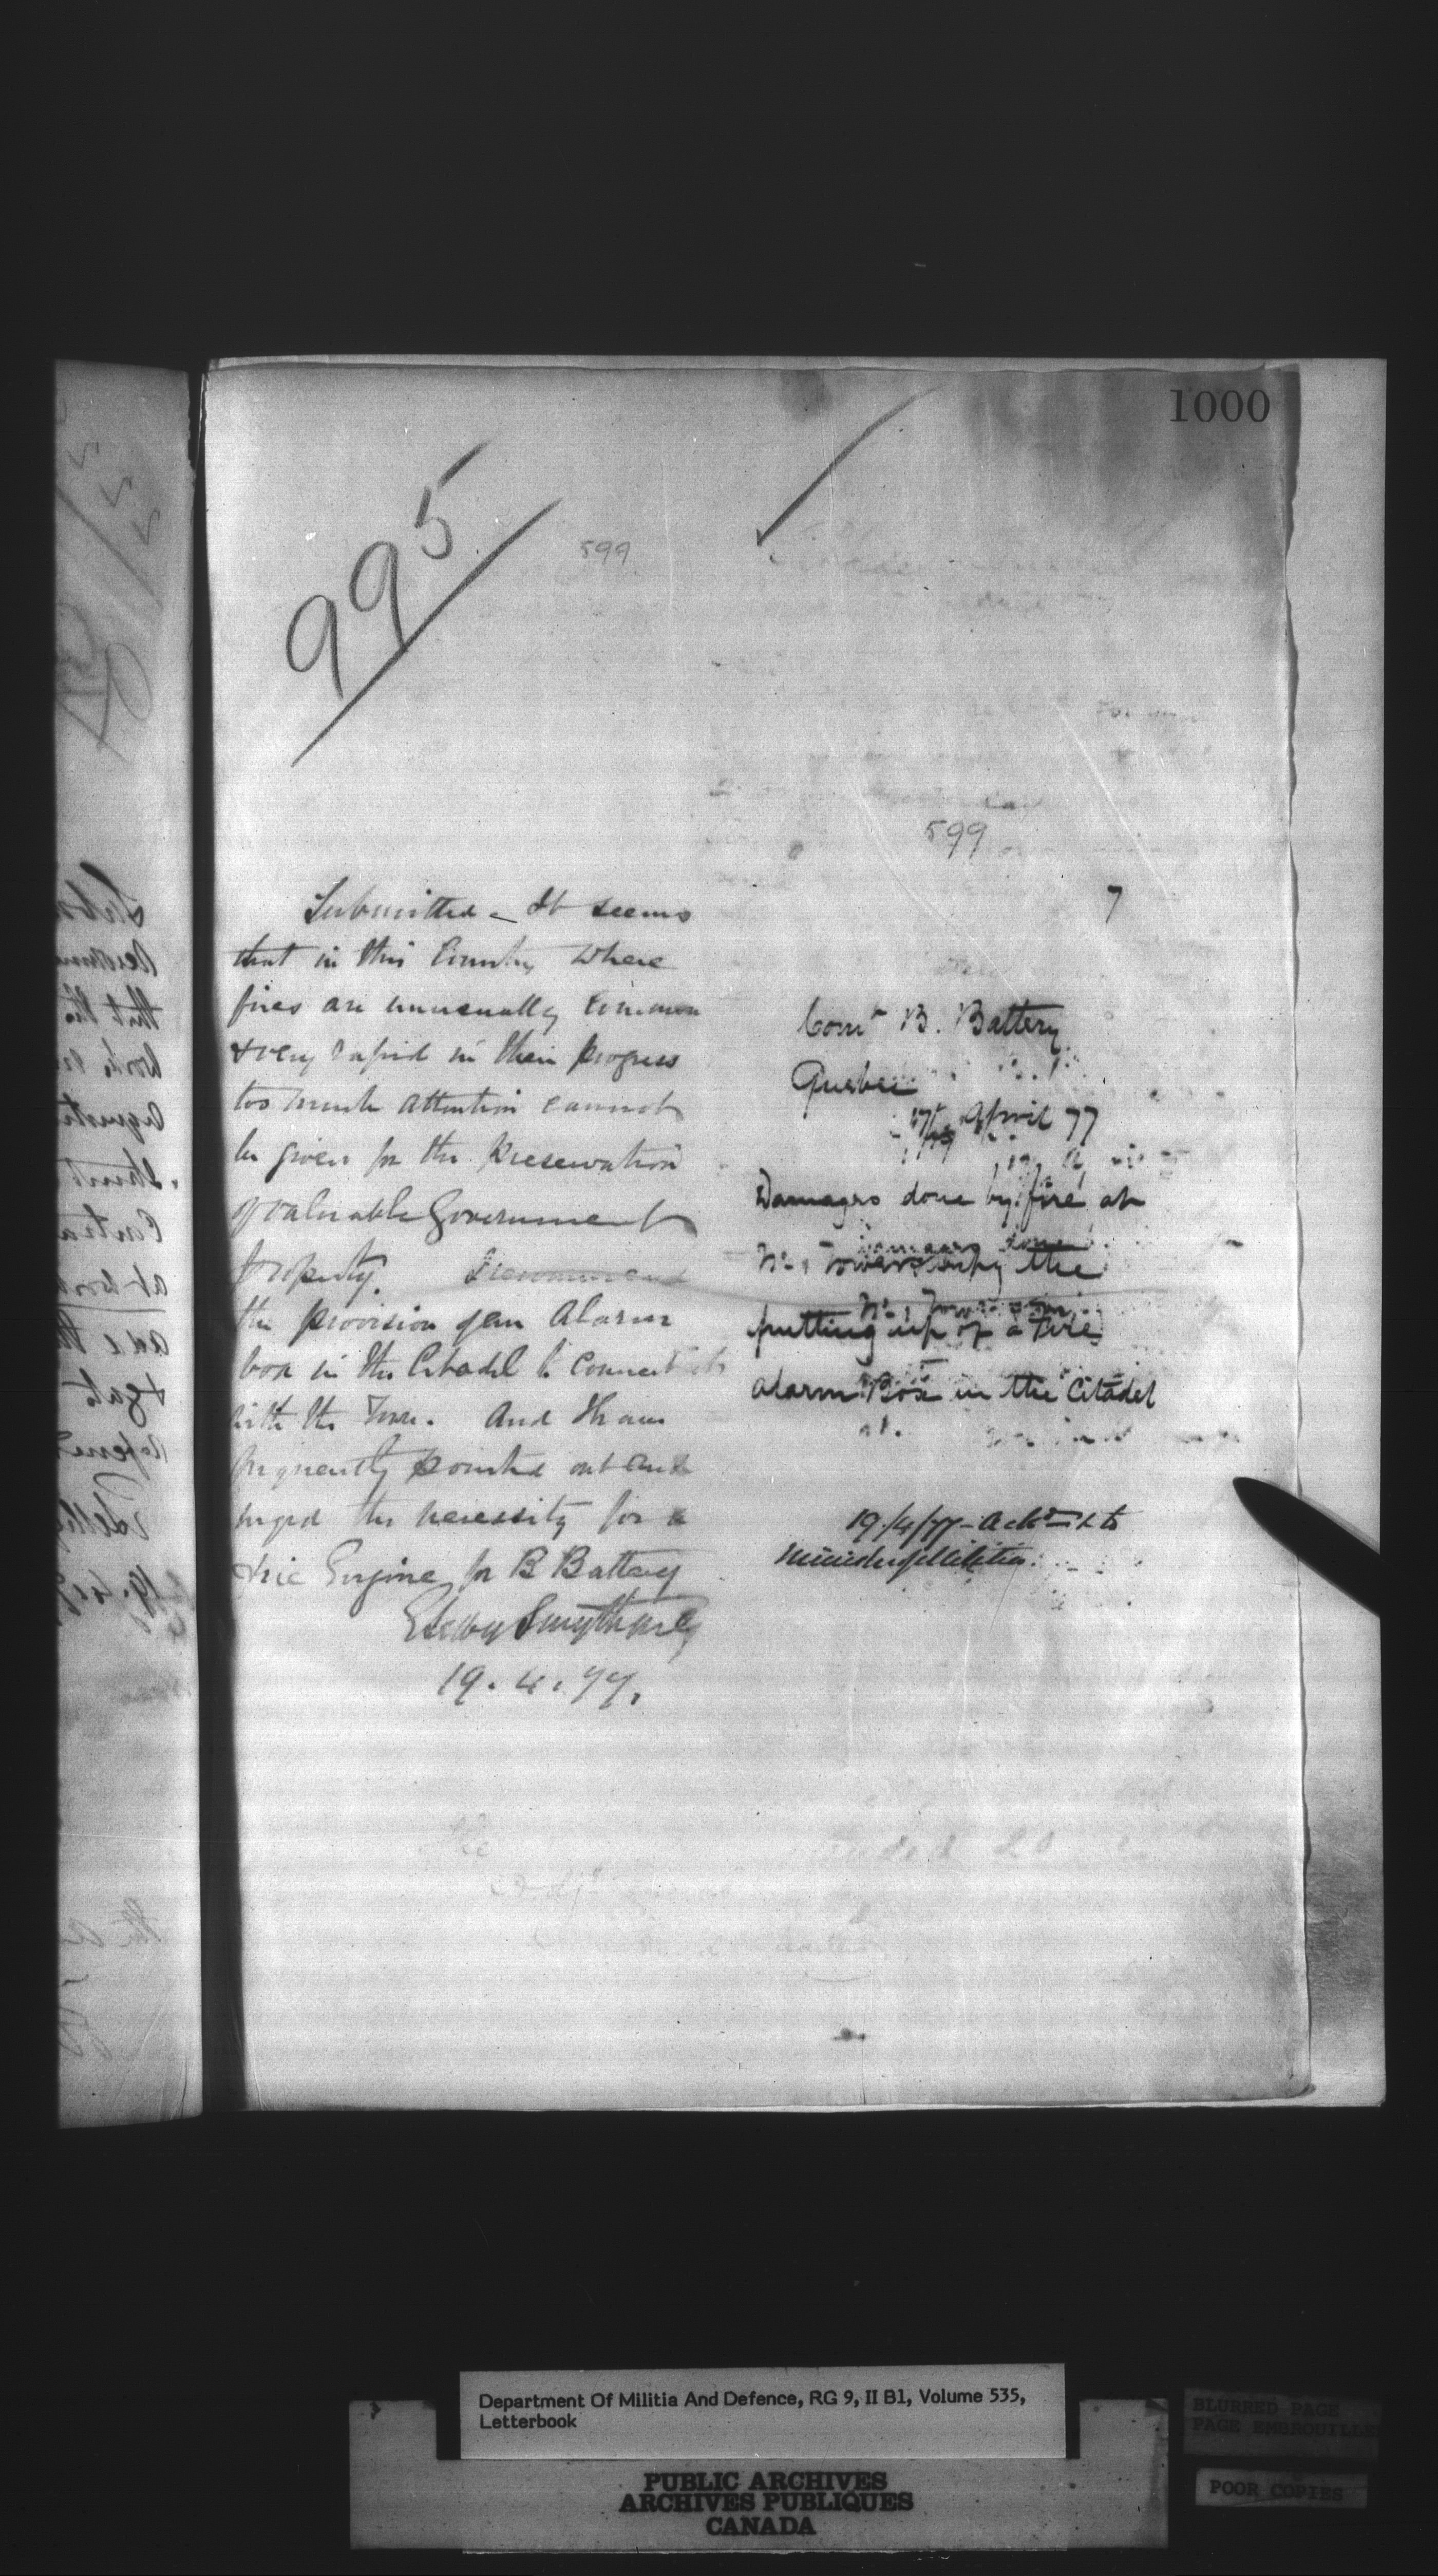 1000
995
599
599
7
Submitted - It seems
that in this Country where
fires are unusually common
& very rapid in their progress
too much attention cannot
be given for the preservation
of valuable Government
property. Recommend
the provision of an Alarm
box in the Citadel to connect it
with the Town. And I have
frequently pointed out and
urged the necessity for a
Fire Engine for B Battery
Selby Smyth
19.4.77.
Comt B. Battery
Quebec
17th April 77
Damages done by fire at
No 1 Tower the
putting up of a Fire
Alarm Box in the Citadel
19/4/77 - Ackd & to
Minister of Militia.
Department Of Militia And Defence, RG 9, II B1, Volume 535,
Letterbook
PUBLIC ARCHIVES
ARCHIVES PUBLIQUES
CANADA
BLURRED PAGE
PAGE EMBROUILLEE
POOR COPIES